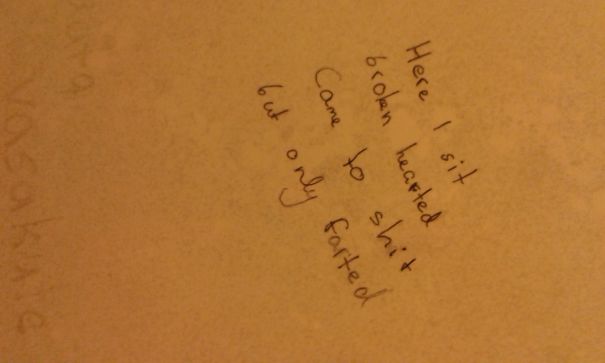 Here I sit
broken hearted
Came to shit
but only farted